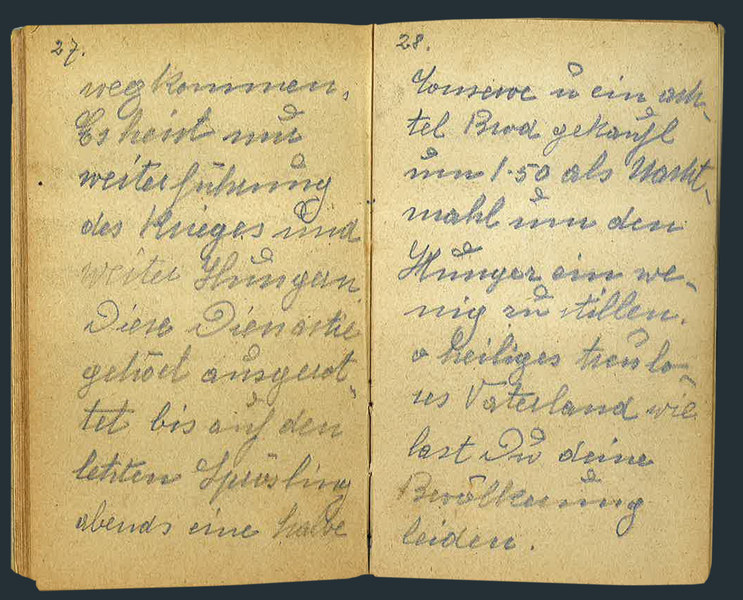 27.
wegkommen.
Es heist nur
weiterführung
des Krieges und
weiter Hungern
Diese Dienastie
gehört ausgerot-
tet bis auf den
letzten Sprösling
abends eine halbe
28.
Konserve u ein ach-
tel Brod gekaufl
um 1·50 als Nacht-
mahl um den
Hunger ein we-
nig zu stillen.
o heiliges treulo-
ses Vaterland wie
last Du deine
Bevölkerung
leiden.